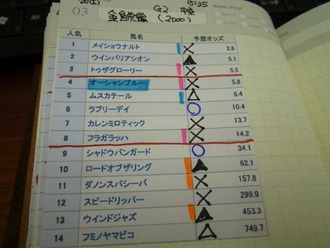 03 金鯱賞 (2000) G2 中京 15:35
人気 馬名 予想オッズ
1 メイショウナルト × 3.8
2 ウインバリアシオン ▲ 5.1
3 トゥザグローリー × 5.5
4 オーシャンブルー × 5.8
5 ムスカテール ▲ 6.4
6 ラブリーデイ ○ 10.4
7 カレンミロティック × 13.7
8 フラガラッハ × 14.2
9 シャドウバンガード ○ 34.1
10 ロードオブザリング ▲ 62.1
11 ダノンスパシーバ × 157.8
12 スピードリッパー × 299.9
13 ウインドジャズ 453.3
14 フミノヤマビコ △ 749.7